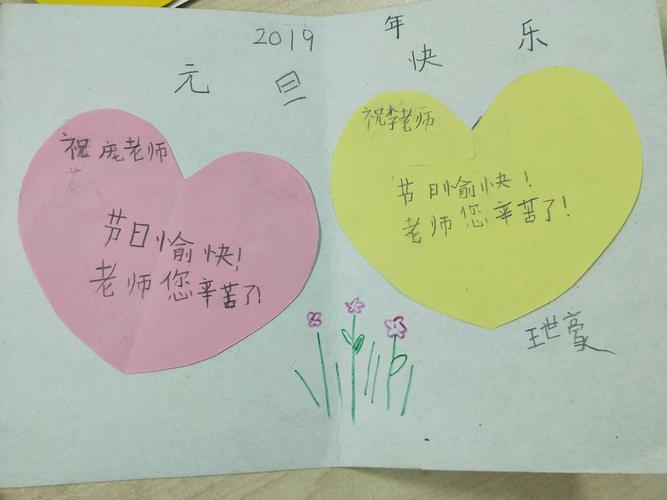 2019 年
元旦 快乐
祝庞老师
节日愉快!
老师您辛苦了!
祝李老师
节日愉快!
老师您辛苦了!
王世豪